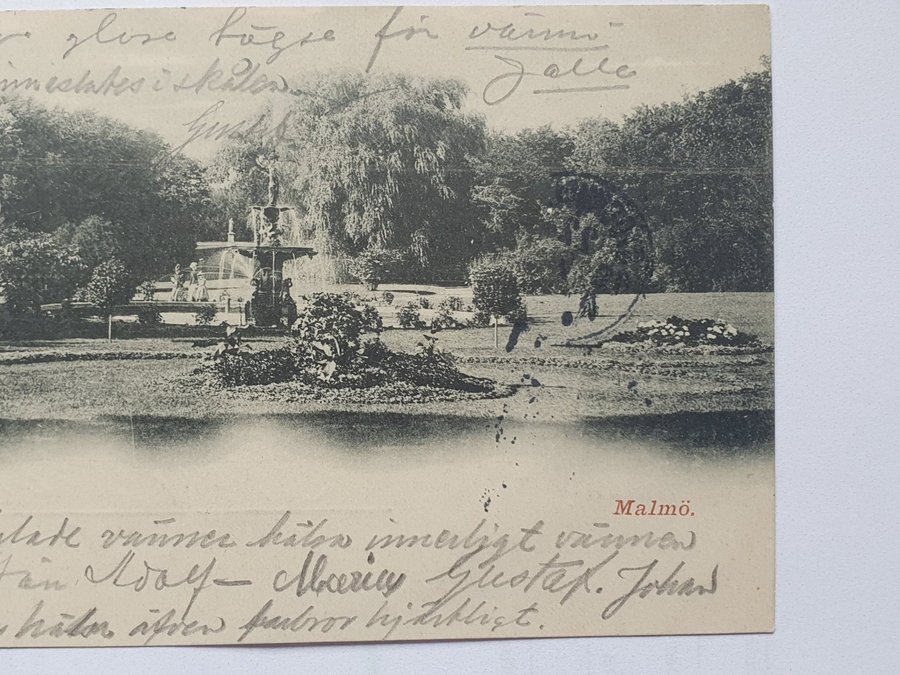 glose högse för värmö
innestates i skålen Jalle
Gustaf
Malmö.
alade vänner hälsa innerligt vännen
från Adolf – Maria Gustaf. Johan
hälsa äfven farbror hjärtligt.